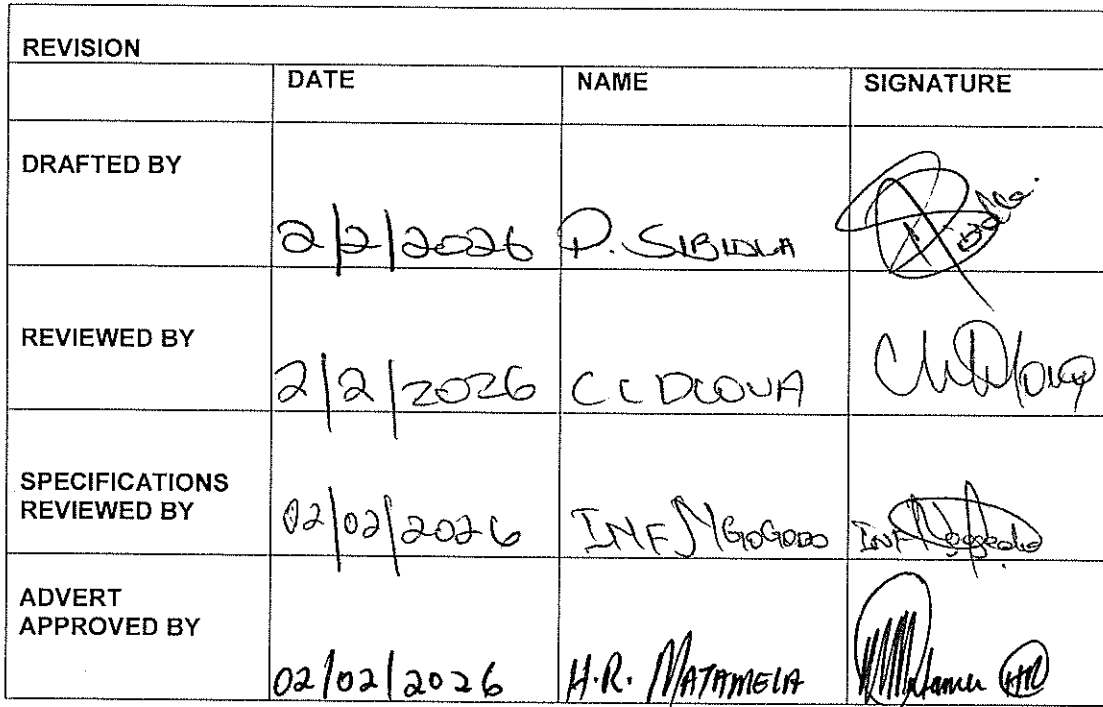 REVISION
DATE NAME SIGNATURE
DRAFTED BY
2/2/2026 P. SIBIDLA
REVIEWED BY
2/2/2026 CC DLOVA
SPECIFICATIONS
REVIEWED BY
02/02/2026 INF NGOGODO
ADVERT
APPROVED BY
02/02/2026 H.R. MATAMELA